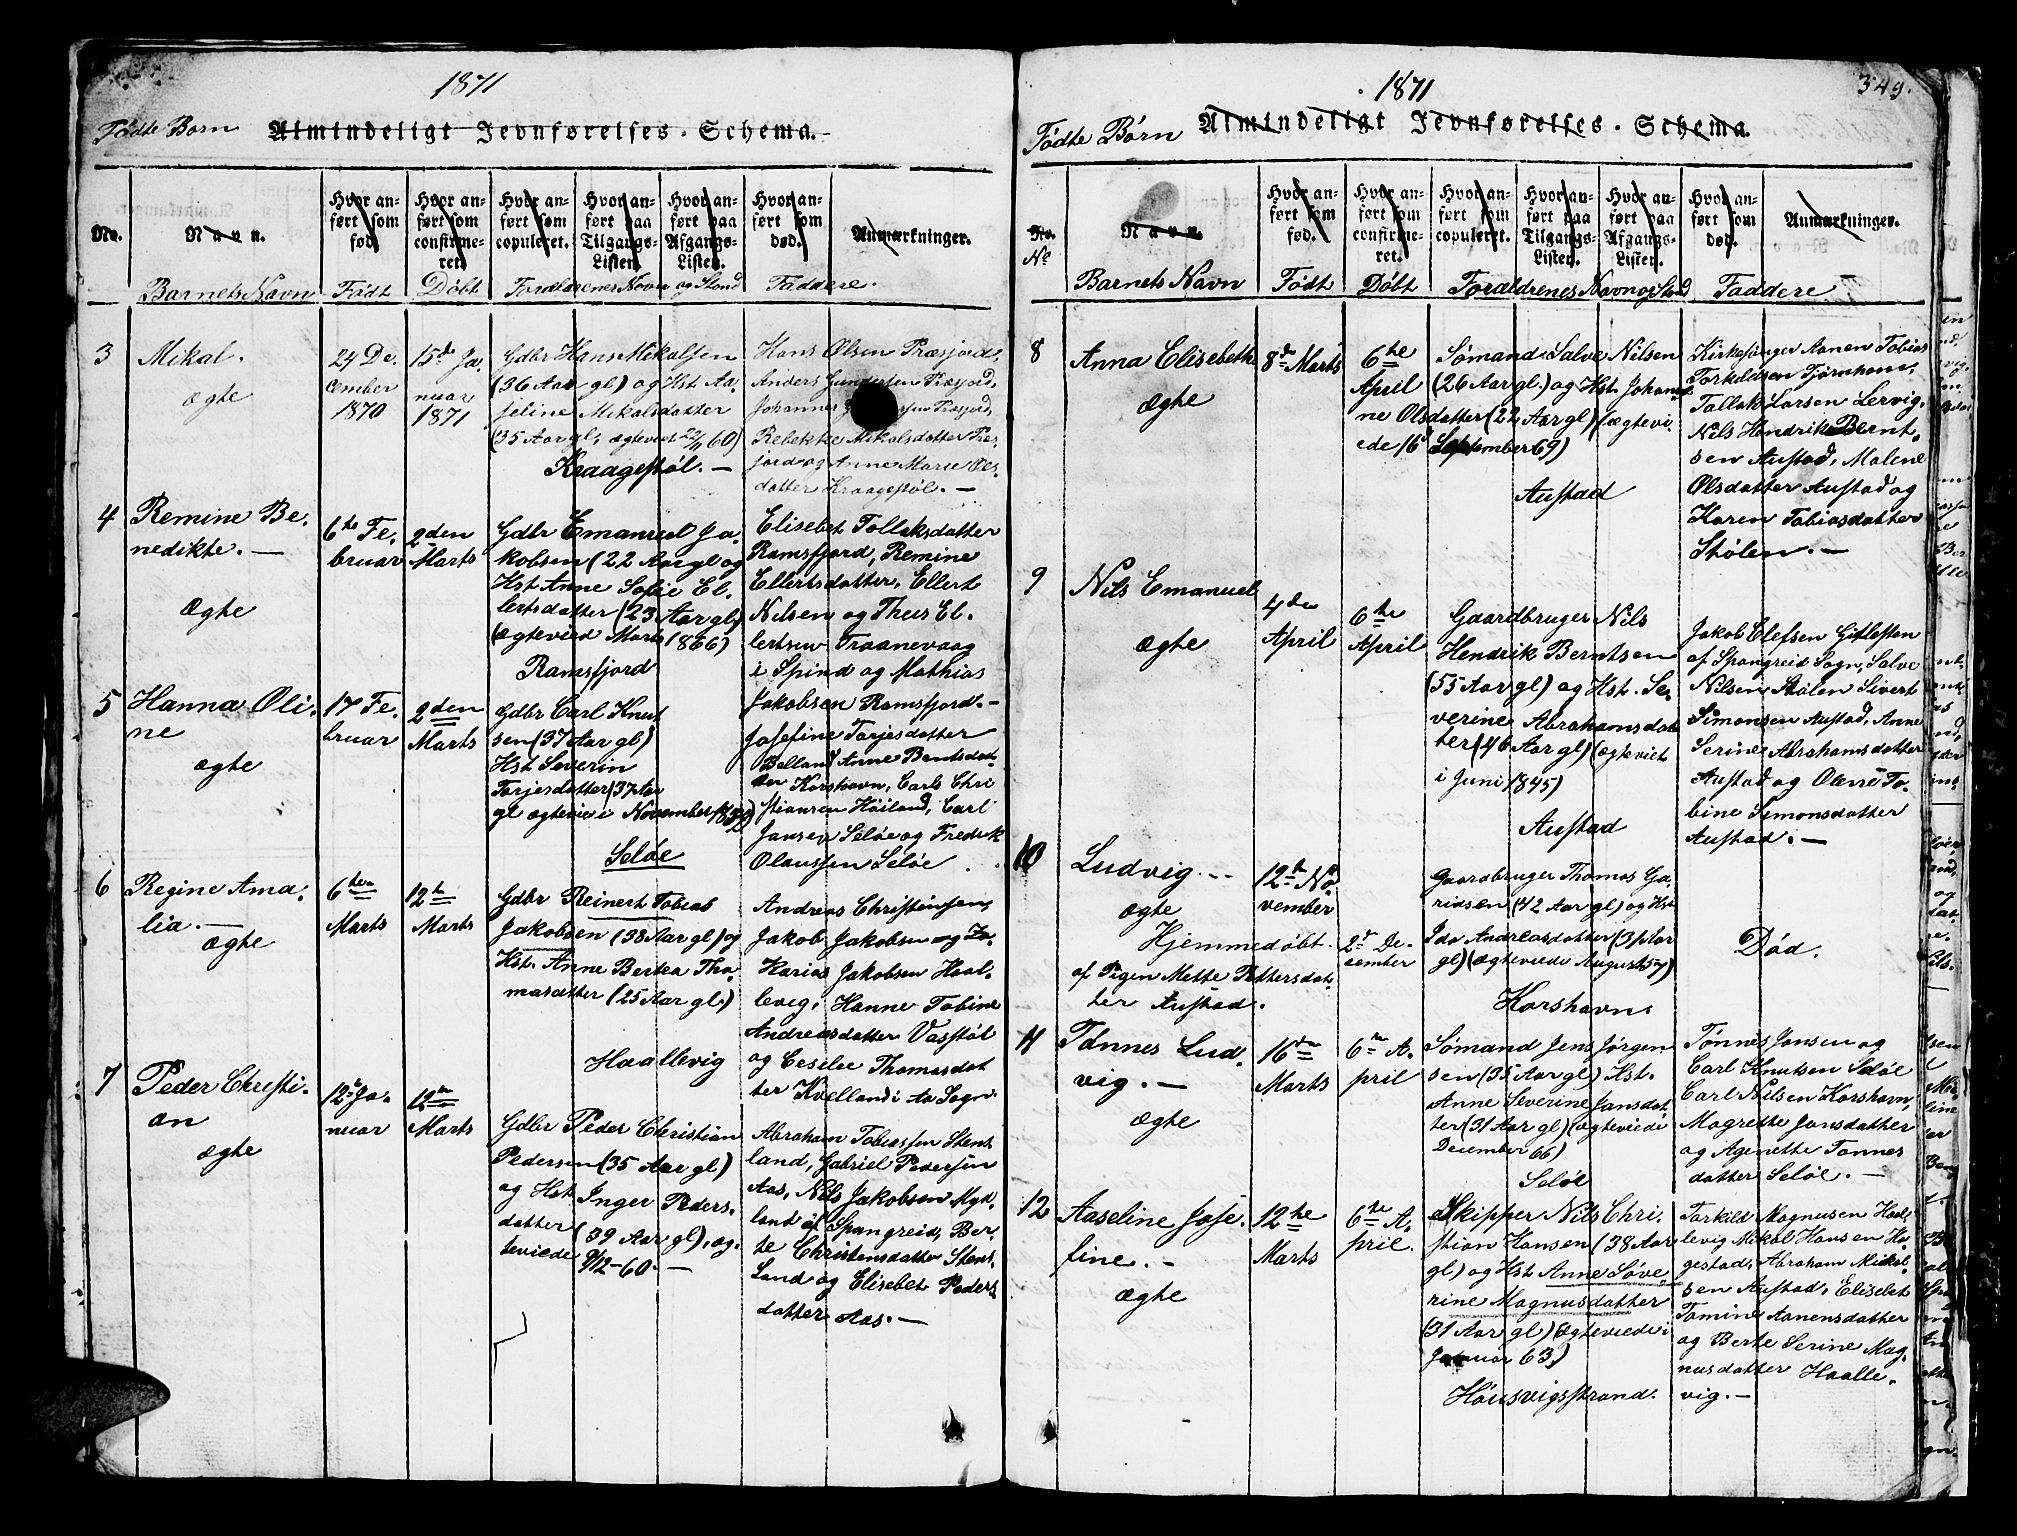 1871
Fødte Børn Almindeligt Jevnførelses-Schema.
No.
Navn.
Hvor anført som fød.
Hvor anført som confirmeret.
Hvor anført som copuleret.
Hvor anført paa Tilgangs-Listen.
Hvor anført paa Afgangs-Listen.
Hvor anført som død.
Anmærkninger.
Barnets Navn Født Døbt Forældrenes Navn og Stand Faddere.
3
Mikal.
ægte
24 De-
cember
1870
15d Ja-
nuar
1871
Gdbr Hans Mikalsen
(36 Aar gl) og Hst Aa-
jeline Mikalsdatter
(35 Aar gl, ægteviet 22/11 60)
Kraagestøl. —
Hans Olsen Præsjord,
Anders Gundersen Præsjord,
Johannes
Rebekke Mikalsdatter Præ-
jord og Anne Marie Ols-
datter Kraagestøl. —
4
Remine Be-
nedikte. —
Ægte
6te Fe-
bruar
2den
Marts
Gdbr Emanuel Ja-
kobsen (22 Aar gl og
Hst Anne Sofie El-
lertsdatter (23 Aar gl,
(ægteviede Marts 1866)
Ramsfjord
Elisebet Tollaksdatter
Ramsfjord, Remine
Ellertsdatter, Ellert
Nilsen og Theis El-
lertsen Traanevaag
i Spind og Mathias
Jakobsen Ramsfjord. —
5
Hanna Oli-
ne
ægte
17 Fe-
bruar
2den
Marts
Gdbr Carl Knut
sen (37 Aar gl)
Hst Severin
Torjesdatter (37 Aar
gl ægtevie i November
Seløe
Josefine Torjesdatter
Belland Anne Bentsdat-
ter Korshavn, Carls Chri
stiansen Høiland, Carl
Jansen Seløe og Fredrik
Olaussen Seløe.
6
Regine Ama-
lia. —
ægte
6te
Marts
12te
Marts
Gdbr Reinert Tobias
Jakobsen (38 Aar gl) og
Hst. Anne Bertea Tho-
masdatter (25 Aar gl.)
Haallevig
Andreas Christensen,
Jakob Jakobsen og Za-
karias Jakobsen Haal-
levig, Hanne Tobine
Andreasdatter Vasstøl
og Cesilie Thomasdat
ter Kvelland i Aa Sogn.
7
Peder Christi-
an
ægte
12d Ja-
nuar
12te
Marts
Gdbr Peder Christian
Pedersen (35 Aar gl)
og Hst Inger Peders-
datter (39 Aar gl), æg-
teviede 9/12-60. —
Abraham Tobiassen Stens
land, Gabriel Pedersen
Aas, Nils Jakobsen Myk
land af Spangreid, Ber-
te Christensdatter Stens-
land og Elisebet Peders
datter Aas. —
1871
349.
Fødte Børn Almindeligt Jevnførelses-Schema.
No.
Navn.
Hvor anført som fød.
Hvor anført som confirmeret.
Hvor anført som copuleret.
Hvor anført paa Tilgangs-Listen.
Hvor anført paa Afgangs-Listen.
Hvor anført som død.
Anmærkninger.
No Barnets Navn Født Døbt Forældrenes Navn og Stand Faddere
8
Anna Elisebeth
ægte
8de Marts
6te
April
Sømand Salve Nilsen
(26 Aar gl.) og Hst Johan-
ne Olsdatter (22 Aar gl) (ægtevi-
ede 16d September 69)
Austad
Kirkesanger Aanen Tobias
Torkildsen Tjørnhom,
Tollak Larsen Lervig,
Nils Hendrik Bernt-
sen Austad, Malene
Olsdatter Austad og
Karen Tobiasdatter
Stølen. —
9
Nils Emanuel
ægte
4de
April
6te
April
Gaardbruger Nils
Hendrik Berntsen
(55 Aar gl) og Hst. Se-
verine Abrahamsdat-
ter (46 Aar gl) (ægteviet
i Juni 1845)
Austad
Jakob Elefsen Gitlesten
af Spangreid Sogn, Salve
Nilsen Stølen Sivert
Simonsen Austad, Anne
Serine Abrahamsdatter
Austad og Olene To-
bine Simonsdatter
Austad. —
10
Ludvig --
ægte
Hjemmedøbt
af Pigen Mette Pettersdat-
ter Austad.
12te No
vember
2d De-
cember
Gaardbruger Thomas Ga-
ridsen (42 Aar gl) og Hst
Ida Andreasdatter (31 Aar
gl) (ægteviede August 57)
Korshavn
Død.
11
Tønnes Lud-
vig. —
ægte
16de
Marts
6te A-
pril
Sømand Jens Jørgen
sen (35 Aar gl) Hst.
Anne Severine Jansdat-
ter (31 Aar gl) (ægteviede
December 66)
Seløe
Tønnes Jansen og
Carl Knutsen Seløe
Carl Nilsen Korshavn,
Magrethe Jansdatter
og Agenette Tønnes
datter Seløe. —
12
Aaseline Jose-
fine. —
ægte
12te
Marts
6te A-
pril.
Skipper Nils Chri-
stian Hansen (38 Aar
gl) og Hst Anne Søve-
rine Magnusdatter
(31 Aar gl) (ægteviede i
Januar 63)
Høusvigsstrand.
Torkild Magnusen Haal-
levig Mikal Hansen Ha-
gestad, Abraham Mikal-
sen Austad, Elisebet
Tomine Aanensdatter
og Berte Serine Mag-
nusdatter Haalle-
vig. —